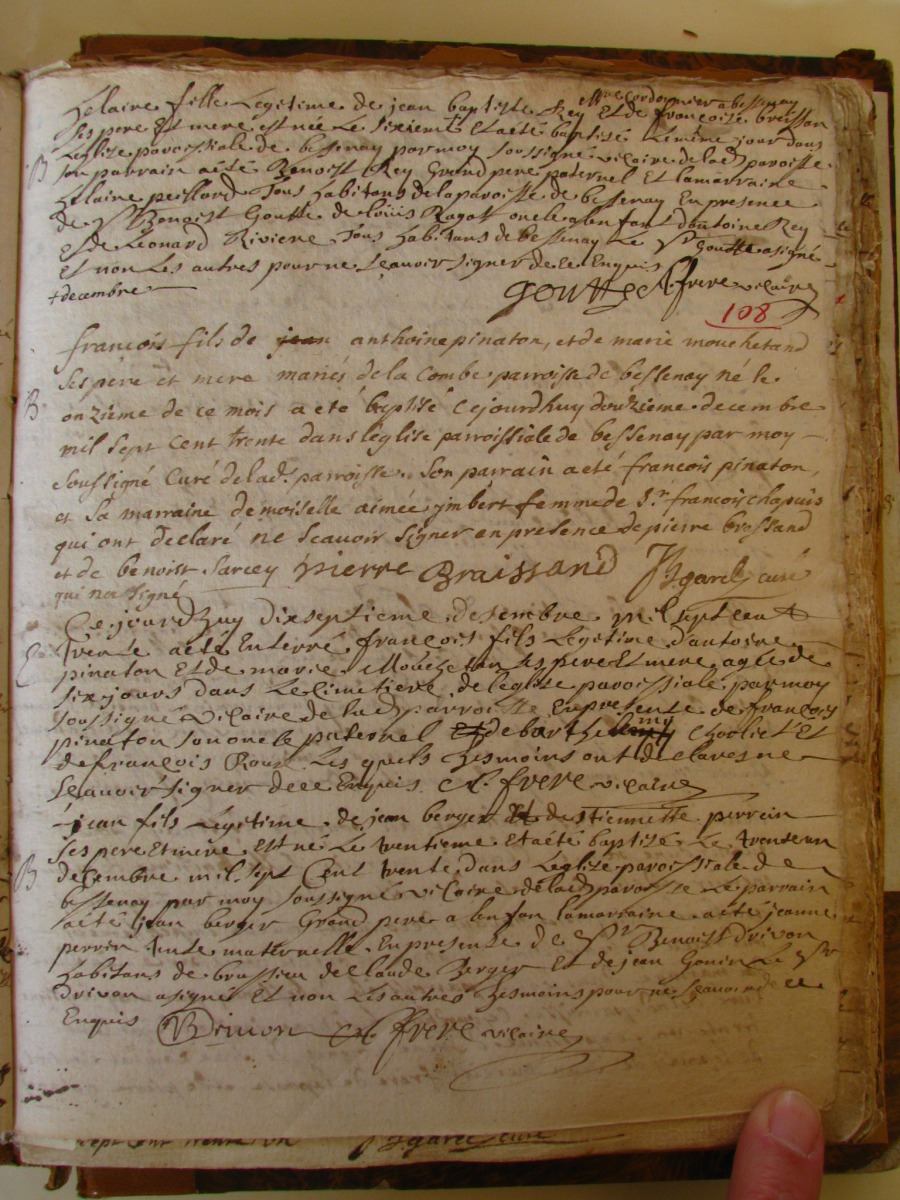 helaire fille Legitime de jean baptiste Rey Mtre Cordonnier a bessenay Et de francoise brossan
ses pere Et mere est née Le sixieme + Et aété baptisé Le meme jour dans
Leglise paroissiale de bessenay par moy soussigné vicaire delad paroisse
son parrain aété Benoist Rey Grand pere paternel Et lamarraine
helaine peillard Tous habitans delaparoisse de bessenay En presence
de Sr Benoist Goutte de loüis Ragot oncle alenfant Dantoine Rey
Et de Leonard Riviere Tous habitans de bessenay Le Sr Goutte asigné
Et non Les autres pour ne sçauoir signer de ce Enquis
+ decembre
goutte frere vicaire
108
B
francois fils de jean anthoine pinaton, et de marie mouchetand
ses pere et mere mariés de la Combe parroisse de bessenay né le
B
onzieme de ce mois a eté baptisé cejourdhuy douzieme decembre
mil sept cent trente dans leglise parroissiale de bessenay par moy
soussigné Curé de lad. parroisse. Son parrain a eté francois pinaton,
et sa marraine demoiselle aimée jmbert femme de Sr. francois chapuis
qui ont declaré ne scauoir signer en presence de pierre brossand
et de benoist sarcey pierre Braissand garel curé
qui na signé
Cejourdhuy dixseptieme desembre mil sept cent
E
trente aeté Enterré françois fils Legitime d'antoine
pinaton Et de marie Mouchetan ses pere Et mere agée de
six jours dans Le cimetiere de leglise paroissiale par moy
soussigné vicaire de lad parroisse En presente de françois
pinaton son oncle paternel Et de barthelemy Chollet Et
de françois Roux Les quels tesmoins ont declares ne
sçauoir signer de ce Enquis frere vicaire
jean fils Legitime de jean berger Et de stiennette perrin
ses pere Et mere Est né Le trentieme Et aété baptisé Le trendeun
B
decembre mil sept Cent trente dans Leglise paroissiale de
bessenay par moy soussigné vicaire de lad paroisse Le parrain
aété jean berger Grand pere a lenfan lamarraine aété jeanne
perrin tente maternelle En presente de Sr Benoist Drivon
habitans de brussieu de Claude Berger Et de jean Gonin Le Sr
Drivon asigné Et non Les autres tesmoins pour ne sçauoir de ce
Enquis BDrivon frere vicaire
sept cent trente un garel curé